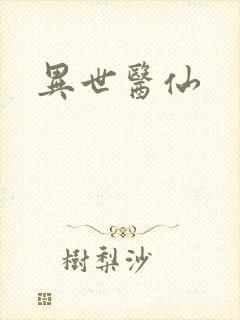 異世醫仙
樹梨沙